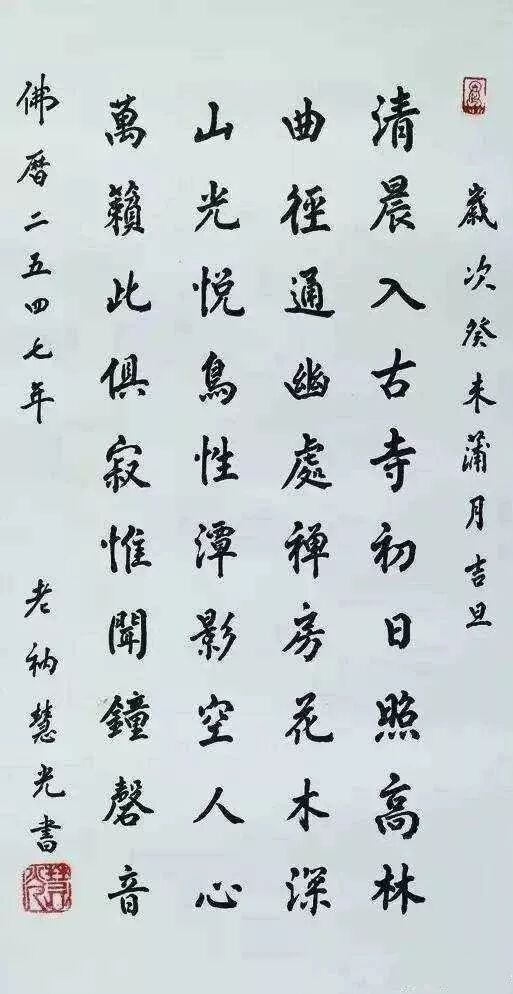 歲次癸未蒲月吉旦
清晨入古寺初日照高林
曲徑通幽處禅房花木深
山光悦鳥性潭影空人心
萬籟此俱寂惟聞鐘磬音
佛曆二五四七年
老衲慧光書